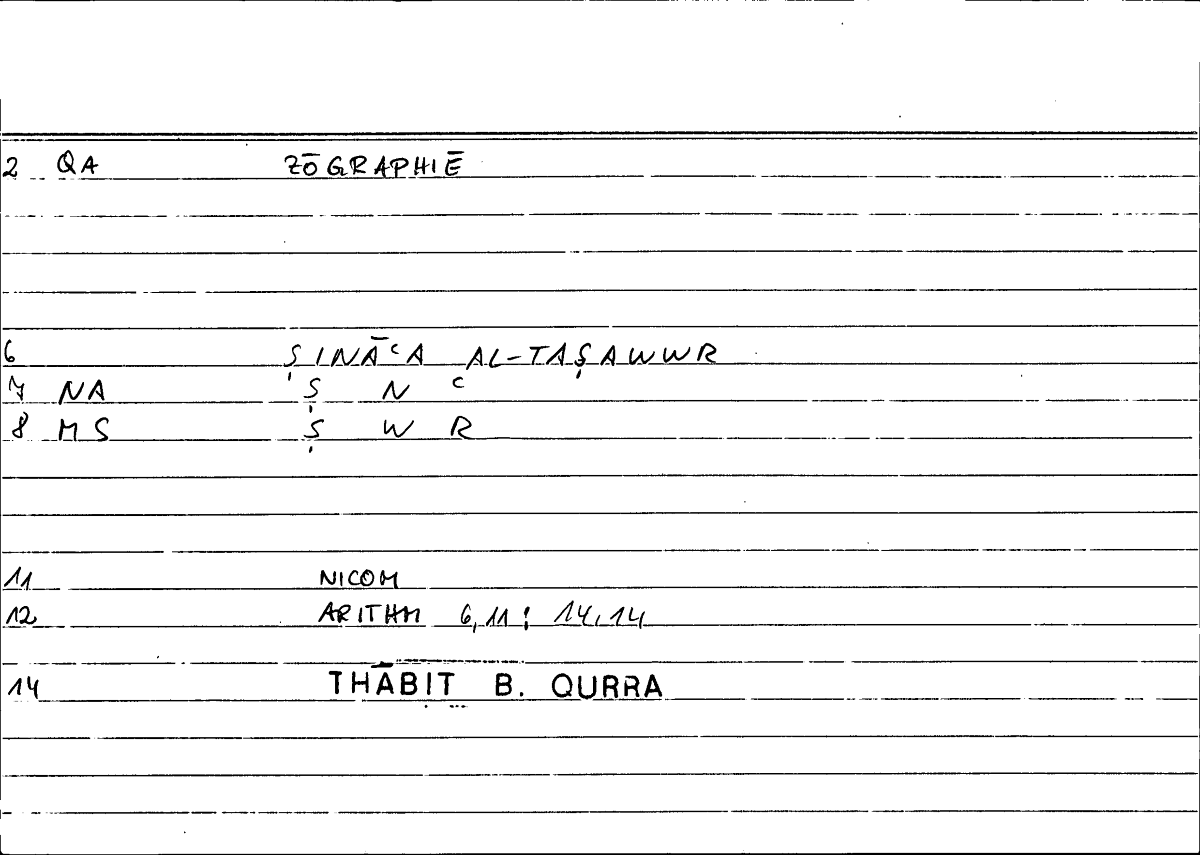 2 QA ZŌGRAPHIĒ
6 ṢINĀʿA AL-TAṢAWWR
7 NA Ṣ N ʿ
8 MS Ṣ W R
11 NICOM
12 ARITHM 6,11; 14,14
14 THĀBIT B. QURRA